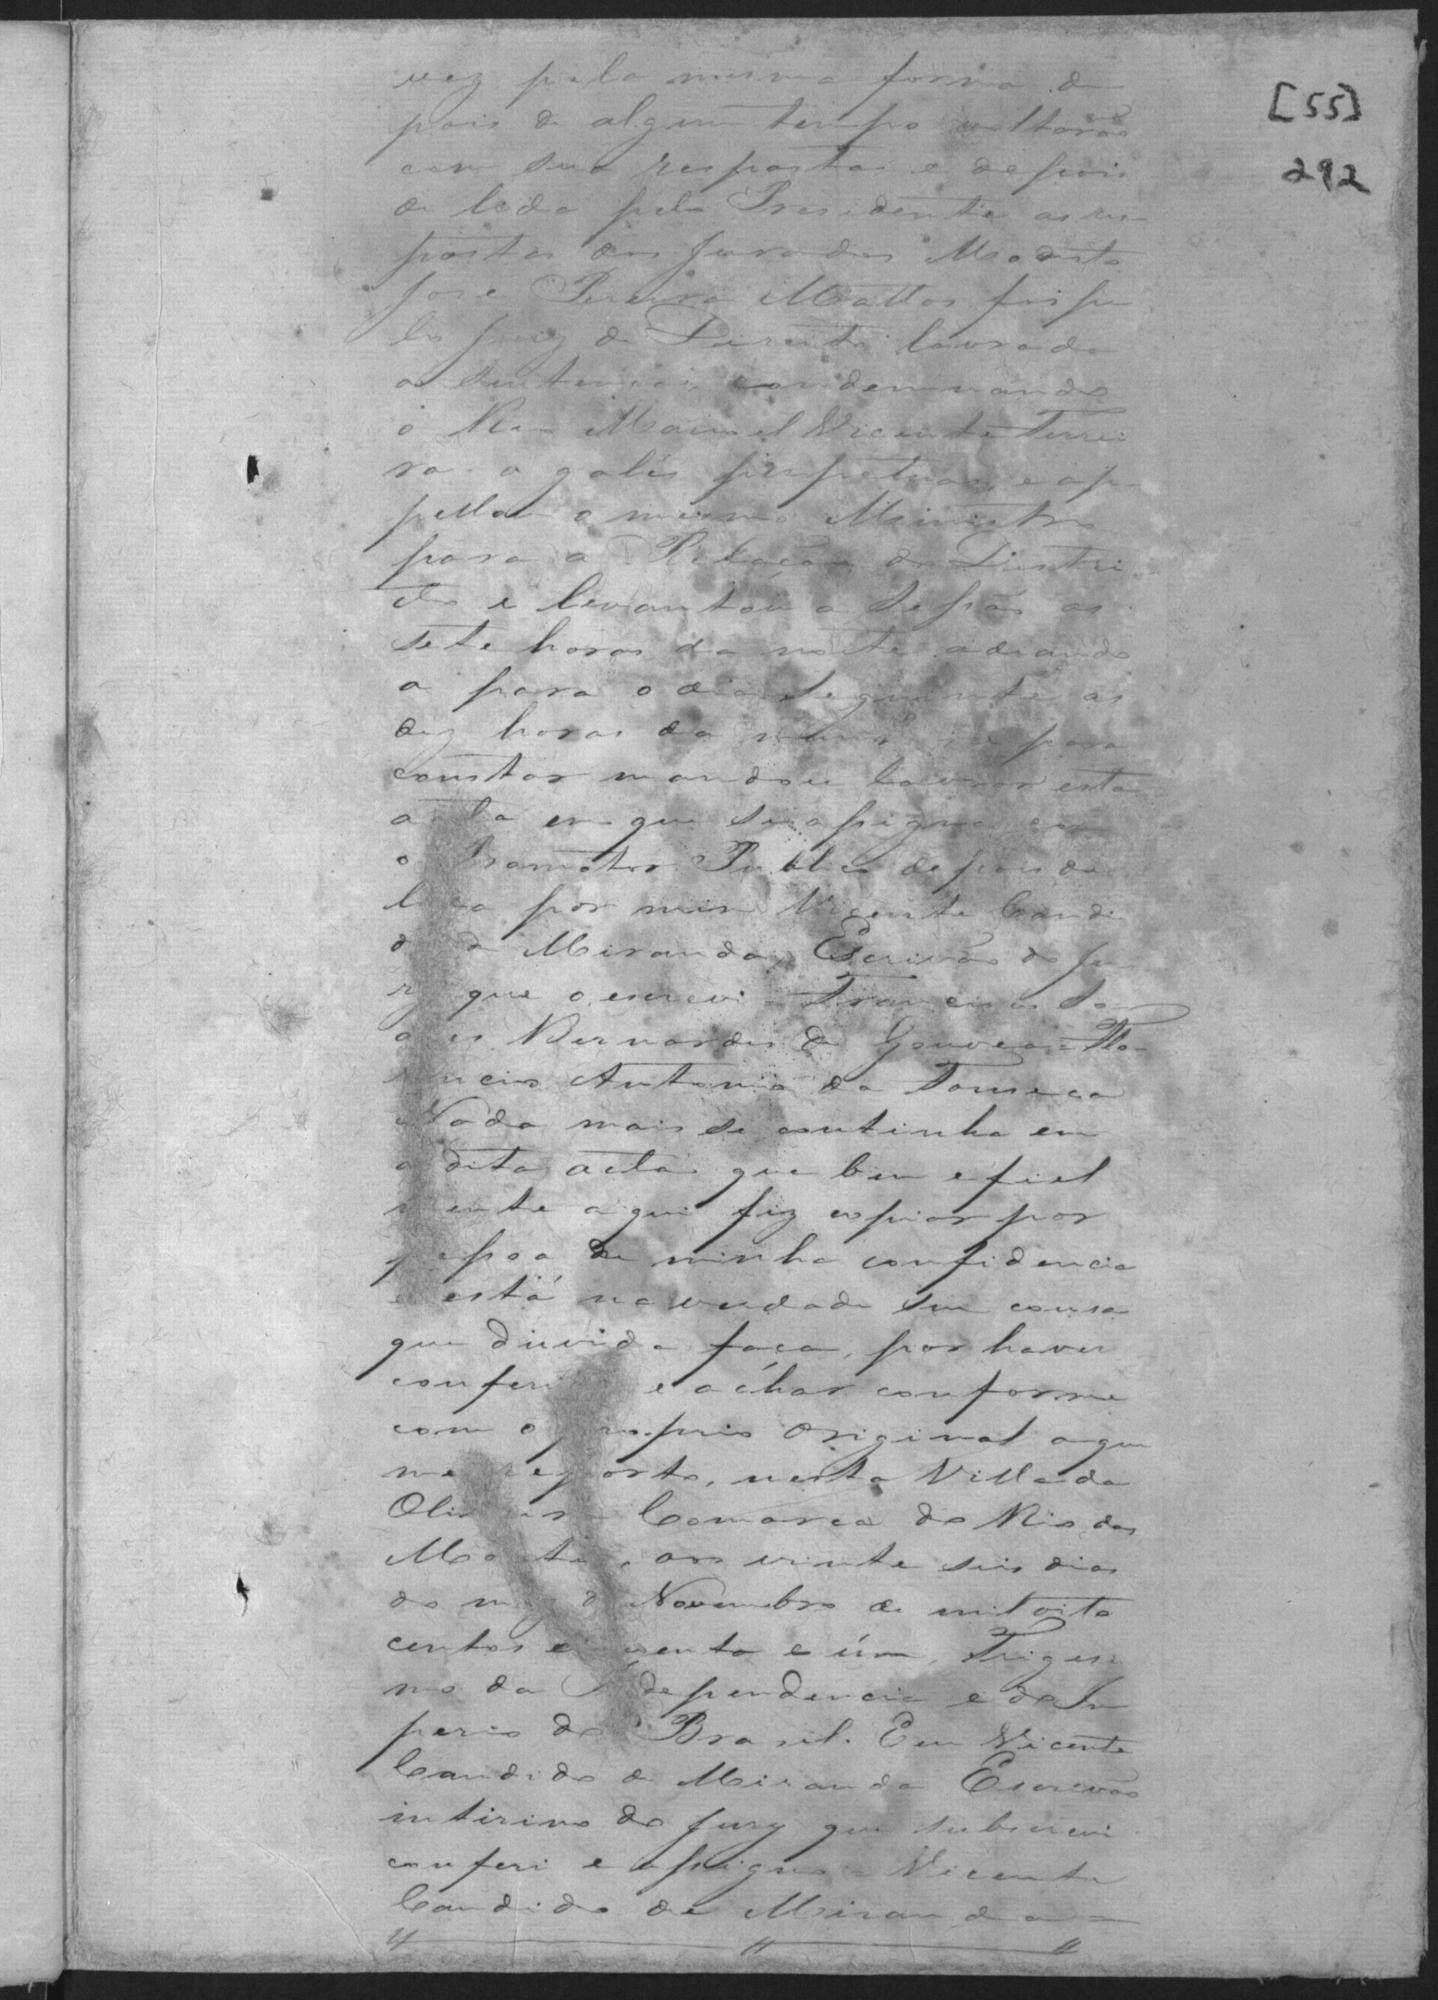 [55]
292
vez pela mesma forma de
pois de algum tempo voltarão
com sua resposta e depois
de lida pelo Presidente as res-
postas dos jurados Modesto
José Pereira Mattos foi pe
lo Juiz de Direito lavrada
a sentença, condemnando
o Reo Manoel Vicente Ferrei
ra a galés perpetuas, e ap-
pellou o mesmo Ministro
para a Relação do Distri
cto e levantou a sessão as
sete horas da noite adiando
a para o dia seguinte as
dez horas da e para
constar mandou lavrar esta
acta em que se assigna com
o Promotor Publico depois de
lida por mim Vicente Candi
do de Miranda, Escrivão do Ju
ry que o escrevi Francisco
Bernardes de Gouvea = Flo-
rencio Antonio da Fonseca
Nada mais se continha em
a dita acta que bem e fiel
mente aqui fiz copiar por
pessoa de minha confidencia
e está na verdade sem cousa
que duvida faça, por haver
conferido e achar conforme
com o proprio original aque
me reporto, nesta Villa da
Oliveira Comarca do Rio das
Mortes, aos vinte seis dias
do mez de Novembro de mil oito
centos e cincoenta e úm, Trigesi
mo da Independencia e do Im
perio do Brasil. Eu Vicente
Candido de Miranda Escrivão
intirino do Jury que subscrevi
conferi e assigno = Vicente
Candido de Miranda =